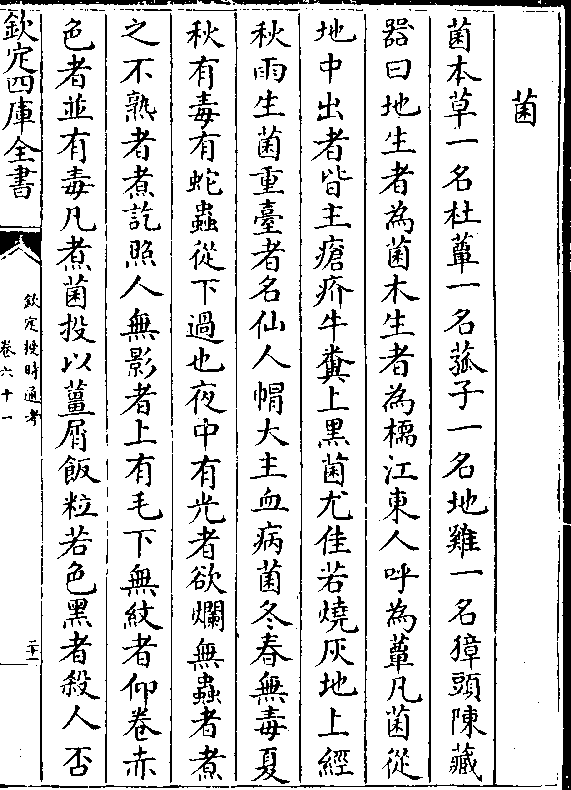 菌
菌本草一名杜蕈一名菰子一名地雞一名獐頭陳藏
器曰地生者為菌木生者為檽江東人呼為蕈凡菌從
地中出者皆主瘡疥牛糞上黑菌尤佳若燒灰地上經
秋雨生菌重臺者名仙人帽大主血病菌冬春無毒夏
秋有毒有蛇蟲從下過也夜中有光者欲爛無蟲者煮
之不熟者煮訖照人無影者上有毛下無紋者仰卷赤
色者並有毒凡煮菌投以薑屑飯粒若色黑者殺人否
欽定四庫全書
欽定授時通考
卷六十一
二十一